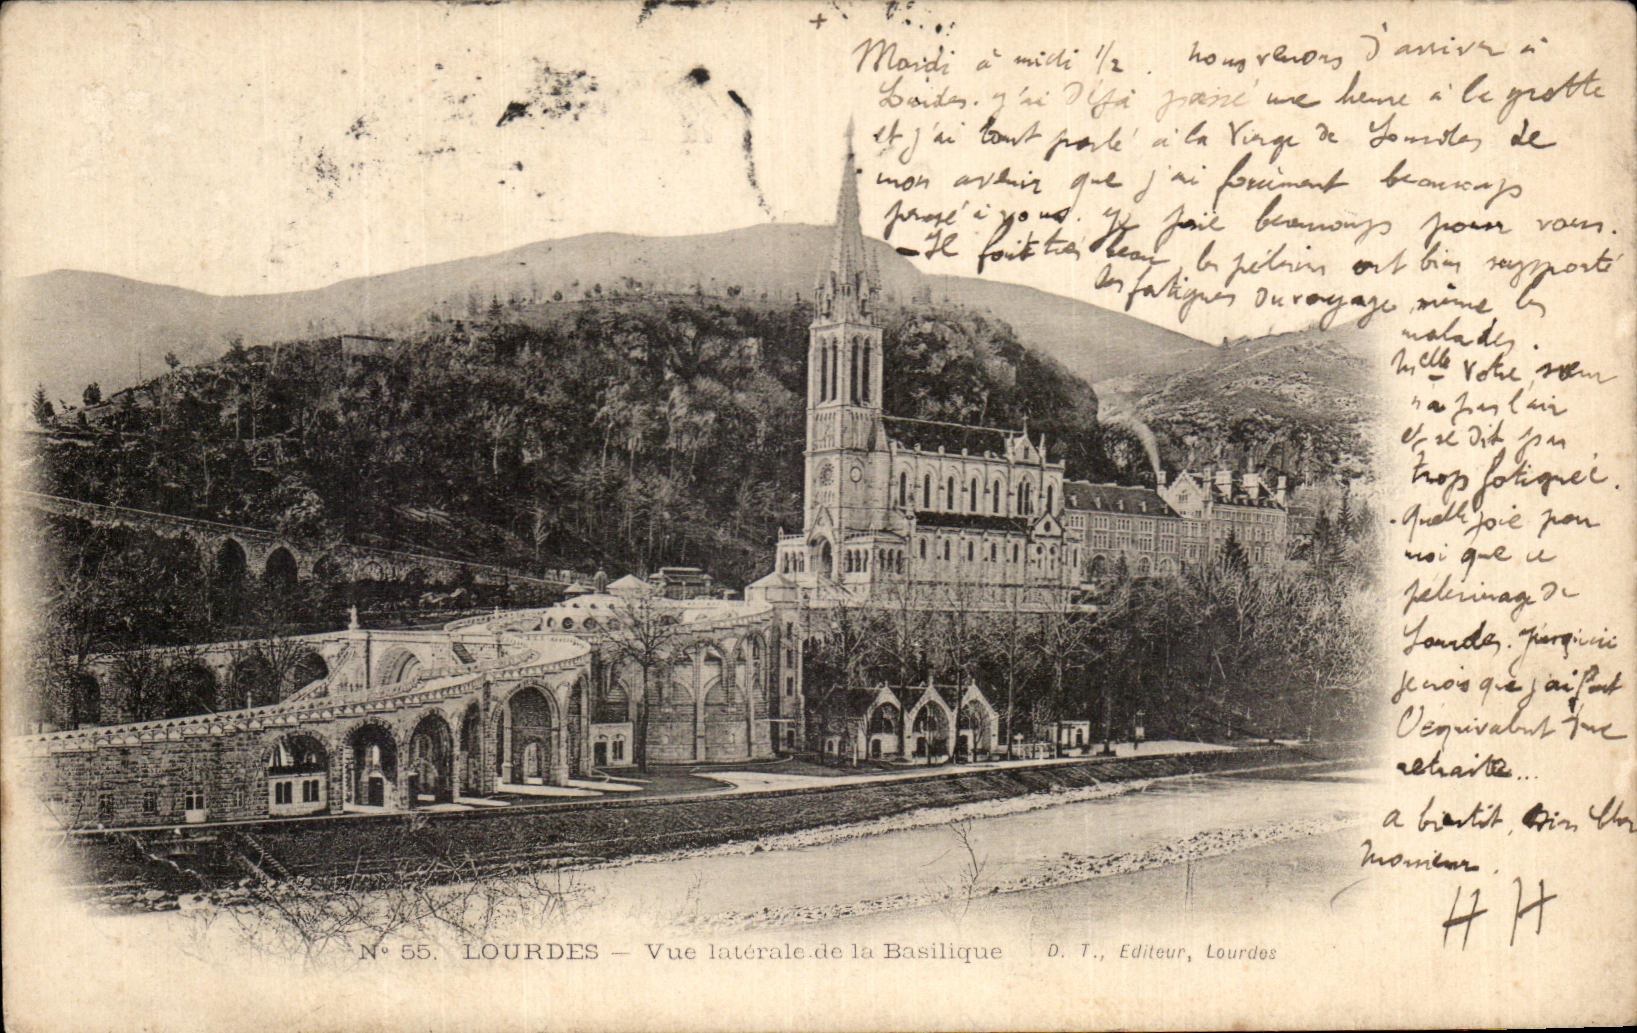 +
Mardi à midi 1/2. nous venons d'arriver à
Lourdes. j'ai déjà passé une heure à la grotte
et j'ai tant parlé à la Vierge de Lourdes de
mon avenir que j'ai forcément beaucoup
pensé à vous. Je prie beaucoup pour vous.
– Il fait très beau, les pélerins ont bien supporté
les fatigues du voyage, même les
malades.
Melle Votre sœur
n'a pas l'air
et se dit pas
trop fatiguée.
Quelle joie pour
moi que ce
pélerinage de
Lourdes.
je crois que j'ai fait
l'équivalent d'une
retraite...
A bientôt, bien cher
Monsieur.
H H
No 55. LOURDES — Vue latérale de la Basilique D. T., Editeur, Lourdes